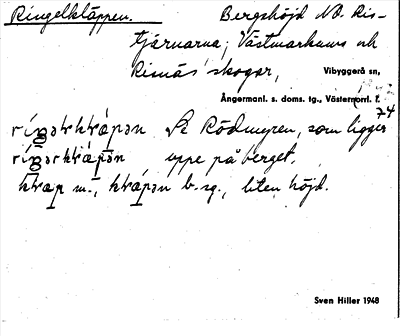 Ringelkläppen. Bergshöjd NO. Ris-
tjärnarna, Västmarkens och
Risnäs skogar, Vibyggerå sn,
Ångermanl. s. doms. tg., Västernorrl. l.
74
Se Rödmyren, som ligger
uppe på berget.
m., b. sg., liten höjd.
Sven Hiller 1948